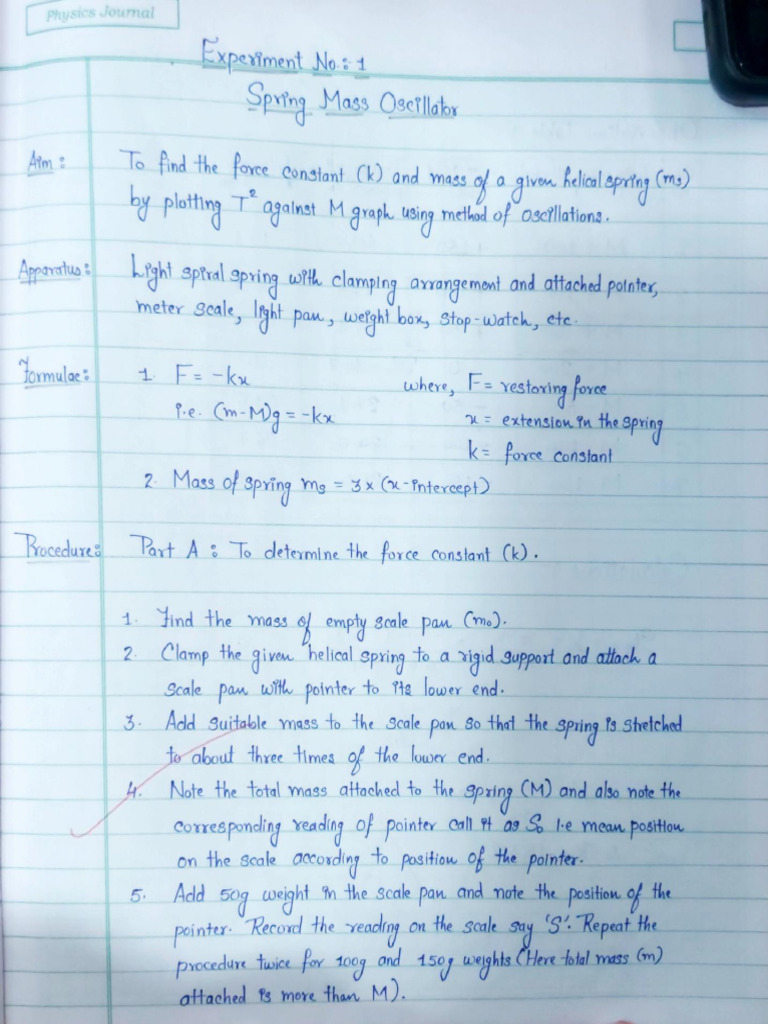 Physics Journal
Experiment No.: 1
Spring Mass Oscillator
Aim: To find the force constant (k) and mass of a given helical spring (ms)
by plotting T² against M graph using method of oscillations.
Apparatus: Light spiral spring with clamping arrangement and attached pointer,
meter scale, light pan, weight box, stop-watch, etc.
Formulae: 1. F = -kx where, F = restoring force
i.e. (m-M)g = -kx x = extension in the spring
k = force constant
2. Mass of spring ms = 3 x (x-intercept)
Procedure: Part A: To determine the force constant (k).
1. Find the mass of empty scale pan (mo).
2. Clamp the given helical spring to a rigid support and attach a
scale pan with pointer to its lower end.
3. Add suitable mass to the scale pan so that the spring is stretched
to about three times of the lower end.
4. Note the total mass attached to the spring (M) and also note the
corresponding reading of pointer call it as So i.e mean position
on the scale according to position of the pointer.
5. Add 50g weight in the scale pan and note the position of the
pointer. Record the reading on the scale say 'S'. Repeat the
procedure twice for 100g and 150g weights (Here total mass (m)
attached is more than M).